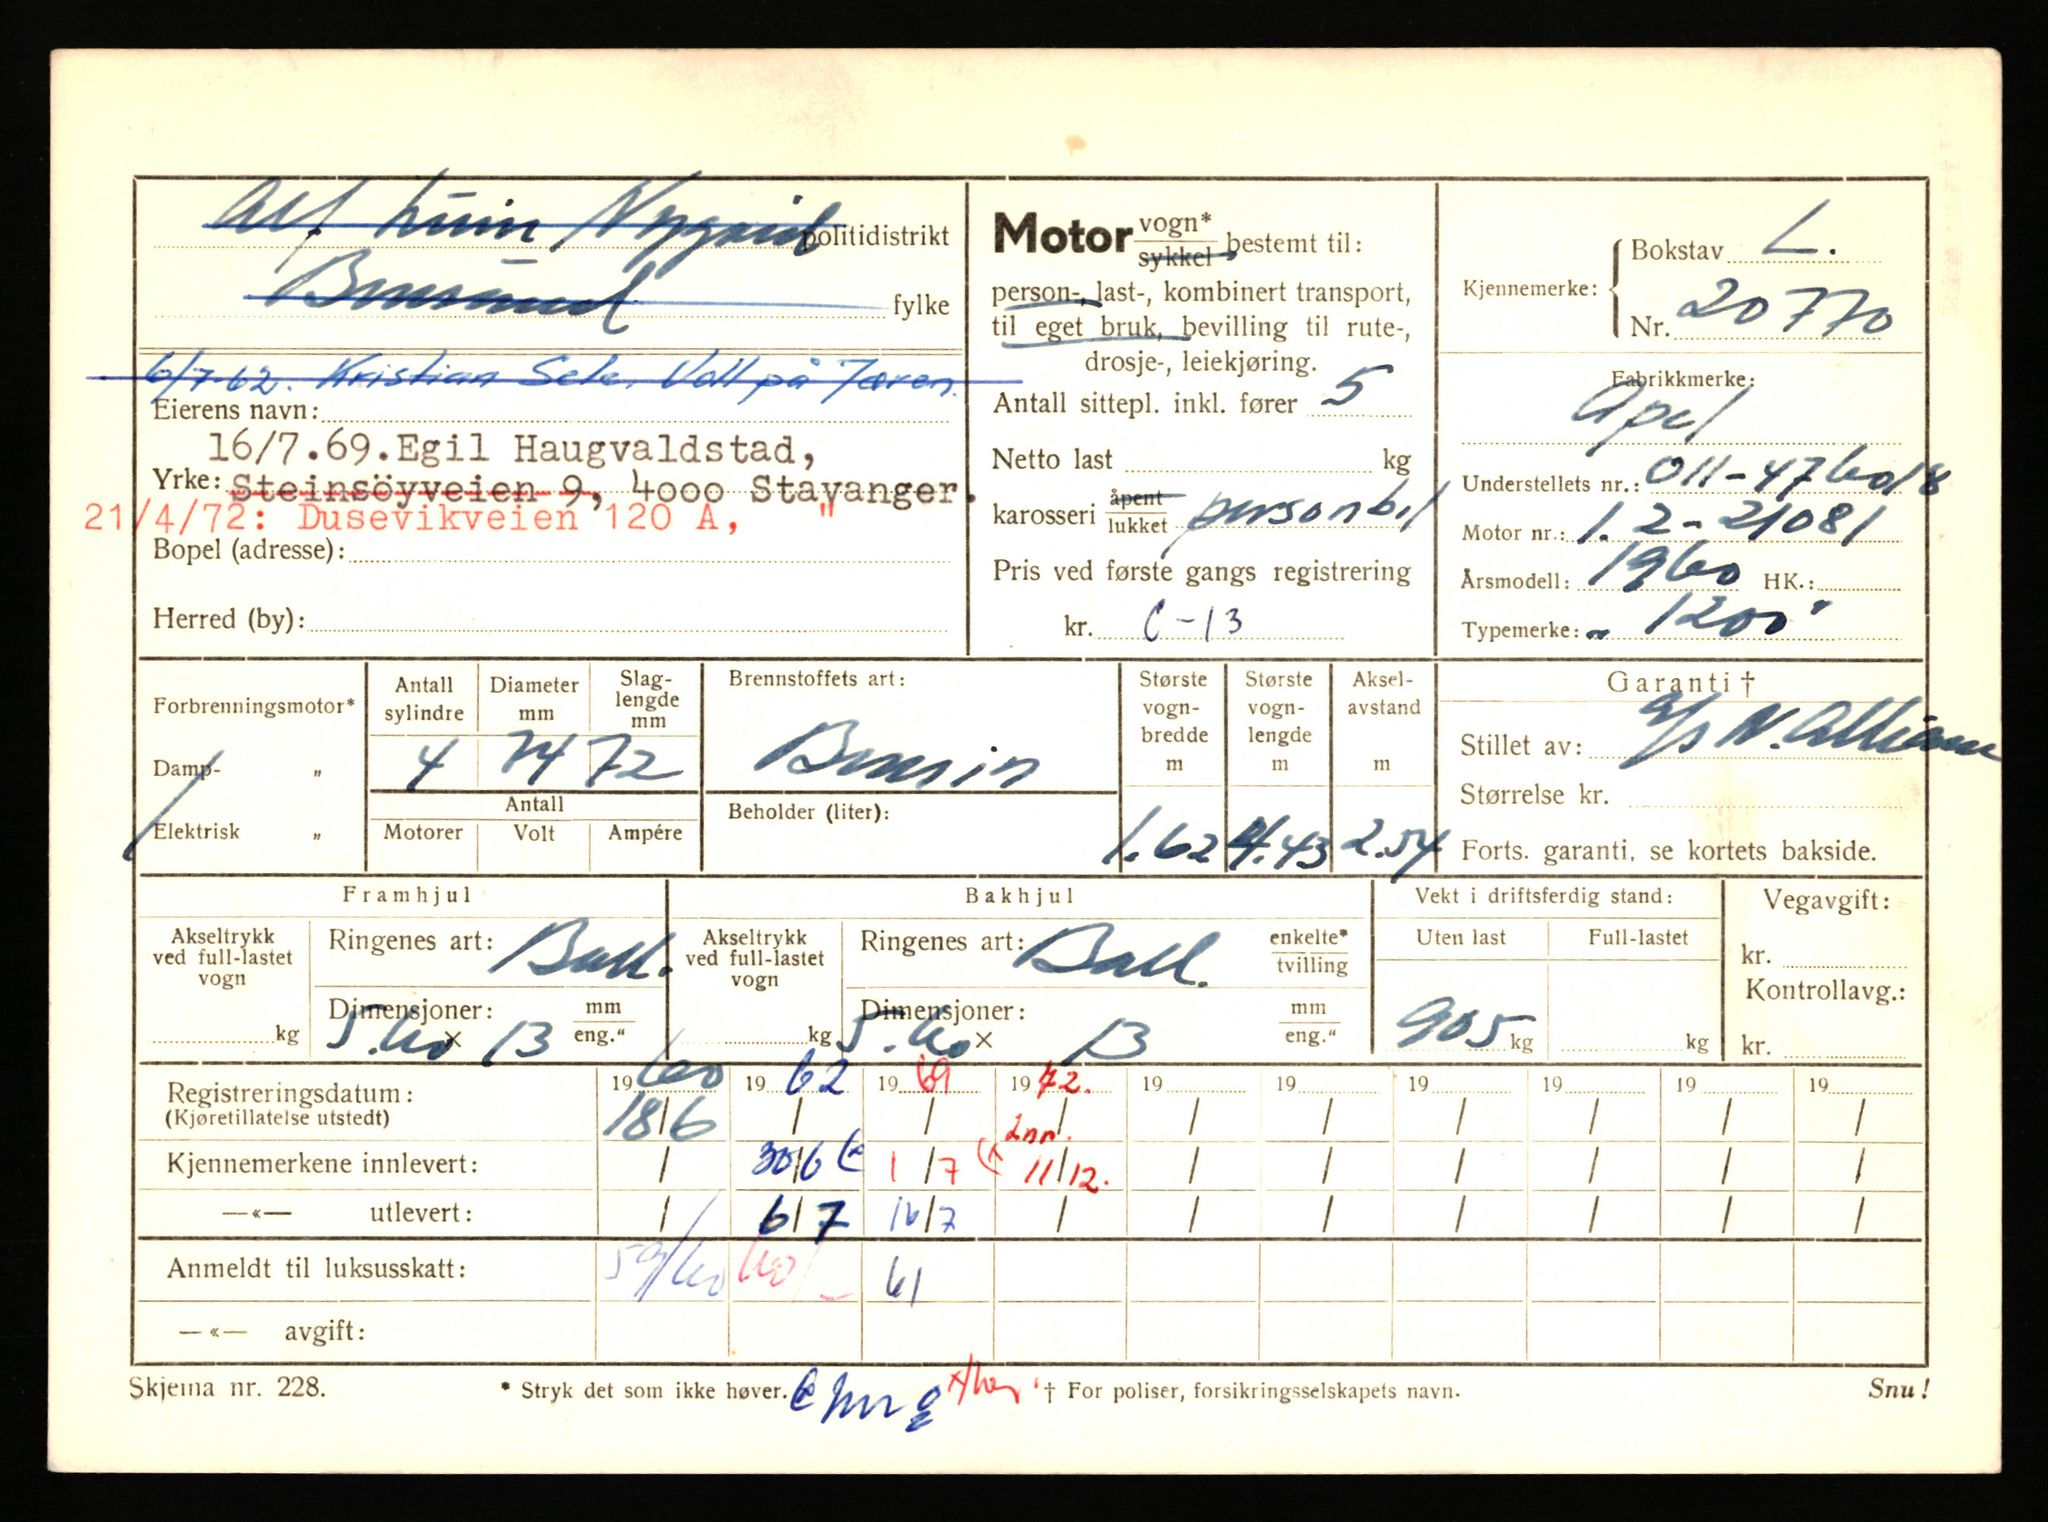 Alf politidistrikt
fylke
6/7-62. Kristian Sele. Voll på Jæren.
Eierens navn:
16/7.69.Egil Haugvaldstad,
Yrke: Steinsöyveien 9, 4000 Stavanger.
21/4/72: Dusevikveien 120 A, "
Bopel (adresse):
Herred (by):
Motor vogn* sykkel bestemt til:
person-, last-, kombinert transport,
til eget bruk, bevilling til rute-,
drosje-, leiekjøring.
Antall sittepl. inkl. fører 5
Netto last kg
karosseri åpent lukket personbil
Pris ved første gangs registrering
kr. C-13
Kjennemerke: Bokstav L.
Nr. 20770
Fabrikkmerke:
Opel
Understellets nr.: 011-476018
Motor nr.: 1.2-21081
Årsmodell: 1960 HK.:
Typemerke: "1200"
Forbrenningsmotor*
Damp- "
Elektrisk "
Antall sylindre Diameter mm Slag-lengde mm
4 74 72
Antall
Motorer Volt Ampére
Brennstoffets art:
Bensin
Beholder (liter):
Største vogn-bredde m Største vogn-lengde m Aksel-avstand m
1.62 4.43 2.54
Garanti †
Stillet av:
Størrelse kr.
Forts. garanti, se kortets bakside.
Framhjul
Akseltrykk ved full-lastet vogn
kg
Ringenes art: Ball.
Dimensjoner: mm
5.60 x 13 eng."
Bakhjul
Akseltrykk ved full-lastet vogn
kg
Ringenes art: Ball. enkelte* tvilling
Dimensjoner: mm
5.60 x 13 eng."
Vekt i driftsferdig stand:
Uten last Full-lastet
905 kg kg
Vegavgift:
kr.
Kontrollavg.:
kr.
Registreringsdatum: 1960 1962 1969 1972. 19 19 19 19 19 19
(Kjøretillatelse utstedt) 18/6 / / / / / / / / /
2nr.
Kjennemerkene innlevert: / 30/6 1/7 11/12. / / / / / /
—«— utlevert: / 6/7 16/7 / / / / / / /
Anmeldt til luksusskatt: 59/60 60/ 61
—«— avgift:
Skjema nr. 228.
* Stryk det som ikke høver.
† For poliser, forsikringsselskapets navn.
Snu!